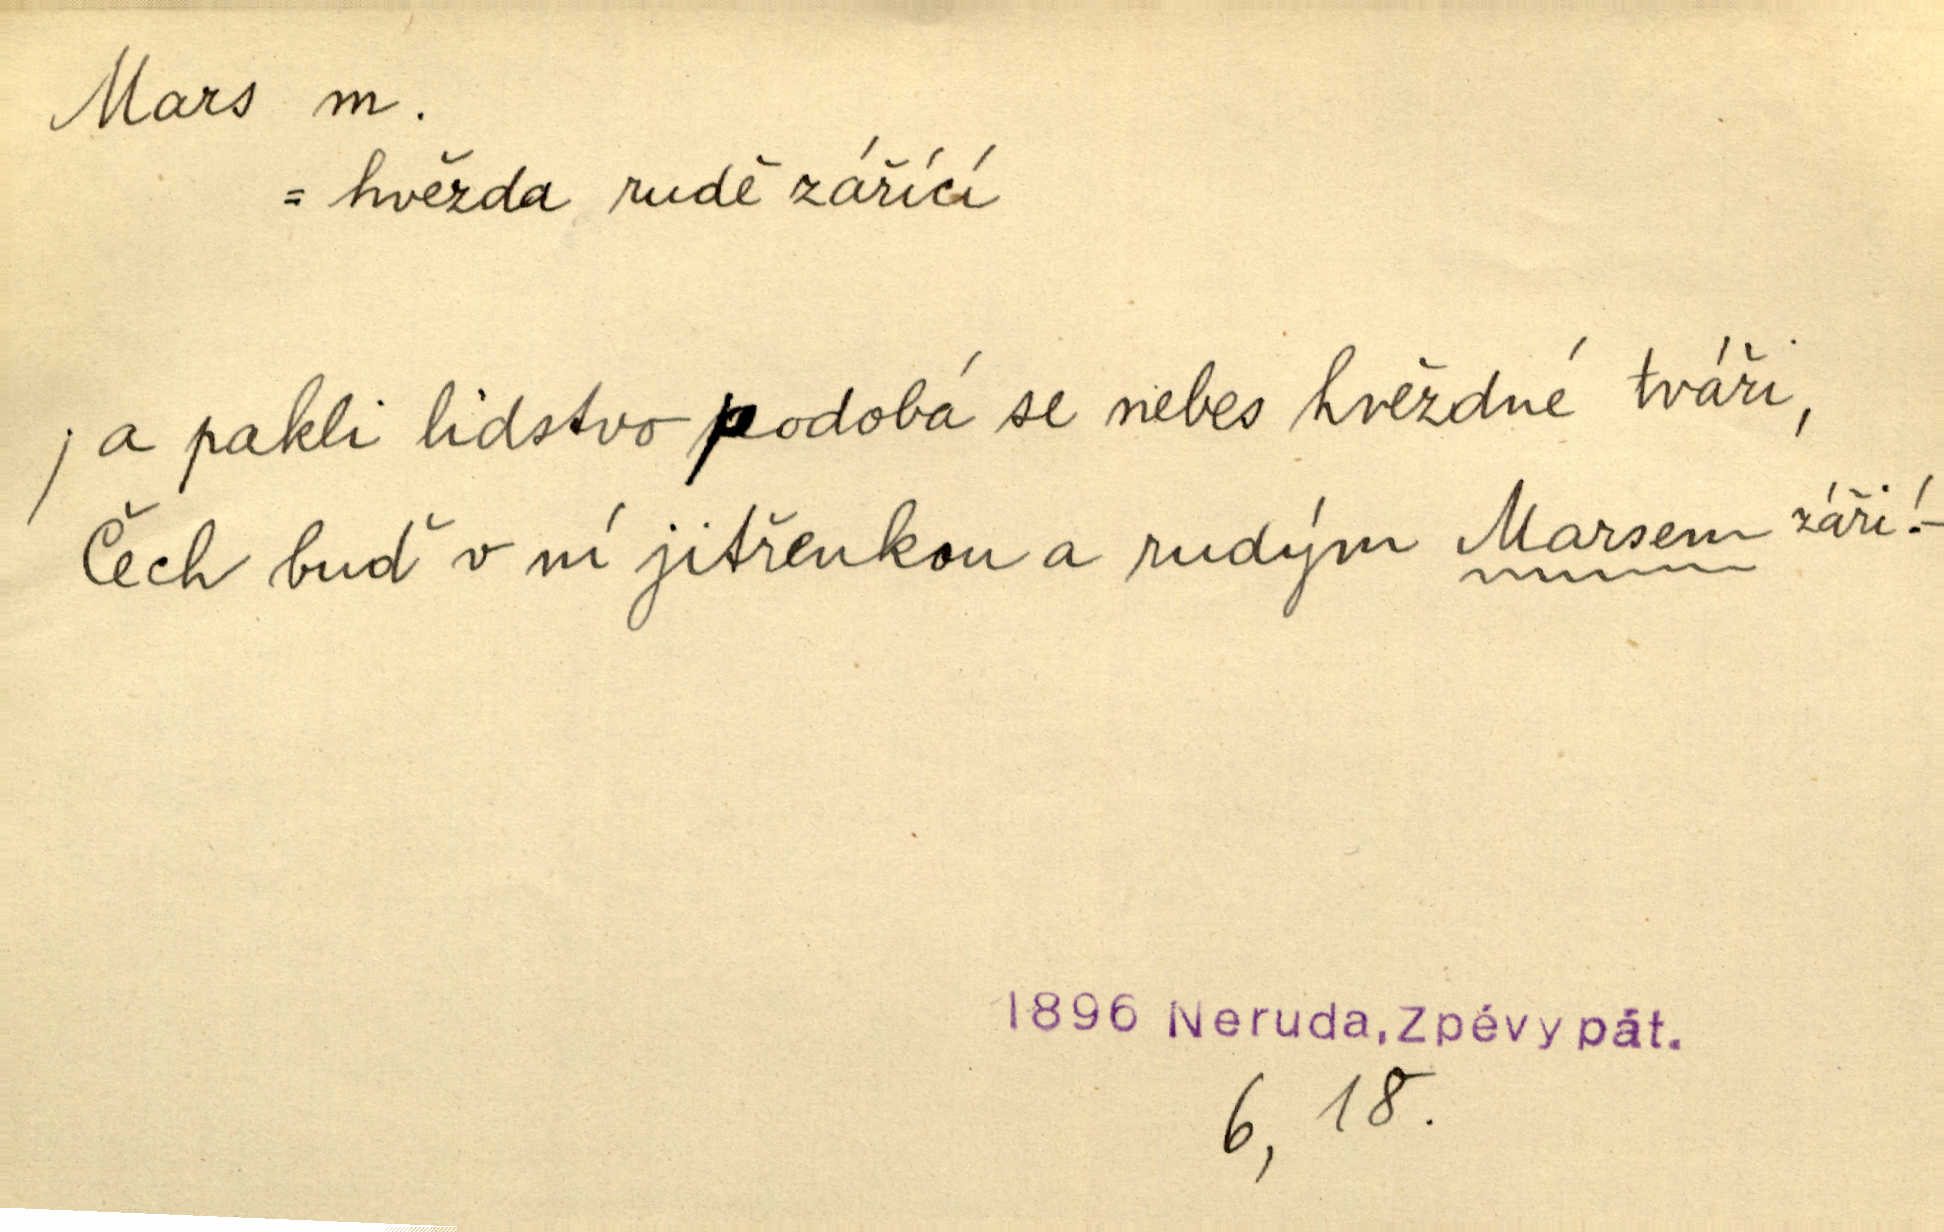 Mars m.
= hvězda rudě zářící
; a pakli lidstvo podobá se nebes hvězdné tváři,
Čech buď v ní jitřenkou a rudým Marsem záři! –
1896 Neruda, Zpěvy pát.
6, 18.